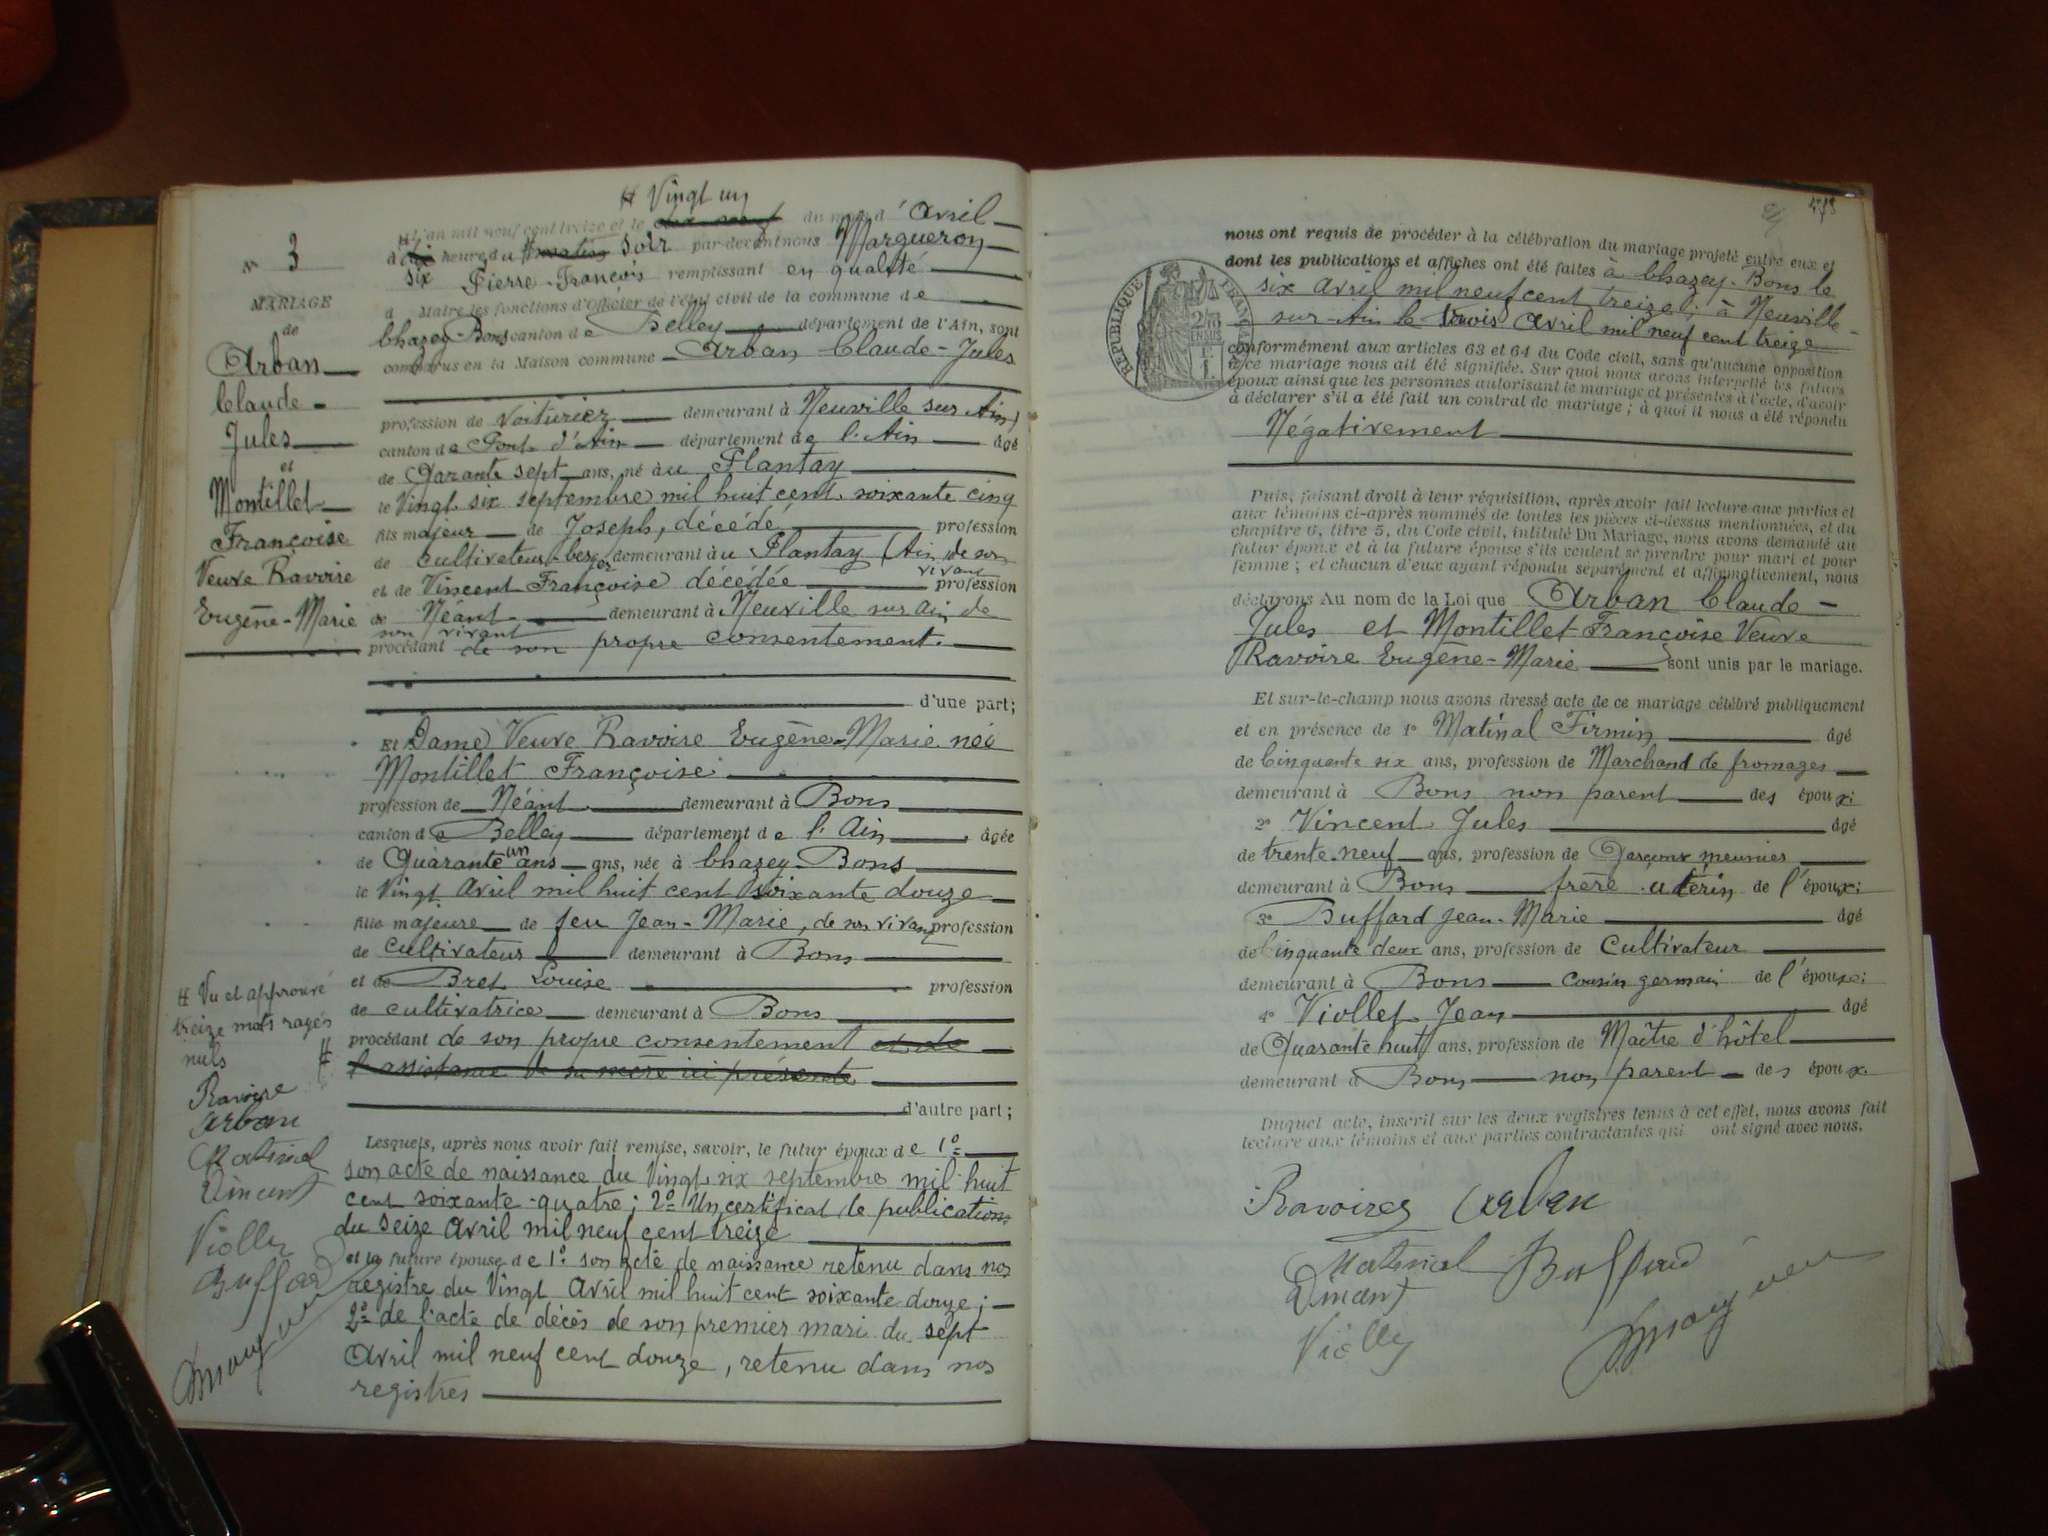 # Vingt un
L'an mil neuf cent treize et le dix neuf du mois d'Avril
à dix heure du matin Soir par-devant nous Margueron
six Pierre-François remplissant en qualité
d Maire les fonctions d'Officier de l'état civil de la commune de
Chazey-Bons canton de Belley département de l'Ain, sont
comparus en la Maison commune Arban Claude-Jules
profession de Voiturier demeurant à Neuville sur Ain
canton de Pont d'Ain département de l'Ain âgé
de Qarante sept ans, né au Plantay
le Vingt six septembre mil huit cent soixante cinq
fils majeur de Joseph, décédé profession
de cultivateur demeurant au Plantay (Ain de son
vivant
et de Vincent Françoise décédée profession
de Néant demeurant à Neuville sur Ain de
son vivant
procédant de son propre consentement.
d'une part;
Et Dame Veuve Ravoire Eugène-Marie née
Montillet Françoise
profession de Néant demeurant à Bons
canton de Belley département de l'Ain âgée
de Quarante un ans ans, née à Chazey-Bons
le Vingt Avril mil huit cent soixante douze
fille majeure de feu Jean-Marie, de son vivant profession
de cultivateur demeurant à Bons
et de Bret Louise profession
de cultivatrice demeurant à Bons
procédant de son propre consentement et de
l'assistance de sa mère ici présente
d'autre part;
Lesquels, après nous avoir fait remise, savoir, le futur époux de 1º
son acte de naissance du Vingt six septembre mil huit
cent soixante-quatre; 2º Un certificat de publications
du seize Avril mil neuf cent treize
et la future épouse de 1º son acte de naissance retenu dans nos
registre du Vingt Avril mil huit cent soixante douze;
2º de l'acte de décès de son premier mari du sept
Avril mil neuf cent douze, retenu dans nos
registres
Nº 3
MARIAGE
de
Arban
Claude
Jules
et
Montillet
Françoise
Veuve Ravoire
Eugène-Marie
# Vu et approuvé
treize mots rayés
nuls #
Ravoire
Arban
Matinal
Vincent
Viollet
Buffard
Margueron
nous ont requis de procéder à la célébration du mariage projeté entre eux et
dont les publications et affiches ont été faites à Chazey-Bons le
six Avril mil neuf cent treize; à Neuville
sur-Ain le trois Avril mil neuf cent treize
conformément aux articles 63 et 64 du Code civil, sans qu'aucune opposition
à ce mariage nous ait été signifiée. Sur quoi nous avons interpellé les futurs
époux ainsi que les personnes autorisant le mariage et présentes à l'acte, d'avoir
à déclarer s'il a été fait un contrat de mariage; à quoi il nous a été répondu
Négativement
RÉPUBLIQUE FRANÇAISE
Puis, faisant droit à leur réquisition, après avoir fait lecture aux parties et
aux témoins ci-après nommés de toutes les pièces ci-dessus mentionnées, et du
chapitre 6, titre 5, du Code civil, intitulé Du Mariage, nous avons demandé au
futur époux et à la future épouse s'ils veulent se prendre pour mari et pour
femme; et chacun d'eux ayant répondu séparément et affirmativement, nous
déclarons Au nom de la Loi que Arban Claude-
Jules et Montillet Françoise Veuve
Ravoire Eugène-Marie sont unis par le mariage.
Et sur-le-champ nous avons dressé acte de ce mariage célébré publiquement
et en présence de 1º Matinal Firmin âgé
de Cinquante six ans, profession de Marchand de fromages
demeurant à Bons non parent des époux;
2º Vincent Jules âgé
de trente-neuf ans, profession de Garçon meunier
demeurant à Bons frère utérin de l'époux;
3º Buffard Jean-Marie âgé
de Cinquante deux ans, profession de Cultivateur
demeurant à Bons cousin germain de l'épouse;
4º Viollet Jean âgé
de Quarante huit ans, profession de Maître d'hôtel
demeurant à Bons non parent des époux.
Duquel acte, inscrit sur les deux registres tenus à cet effet, nous avons fait
lecture aux témoins et aux parties contractantes qui ont signé avec nous.
Ravoire Arban
Matinal Buffard
Vincent Margueron
Viollet